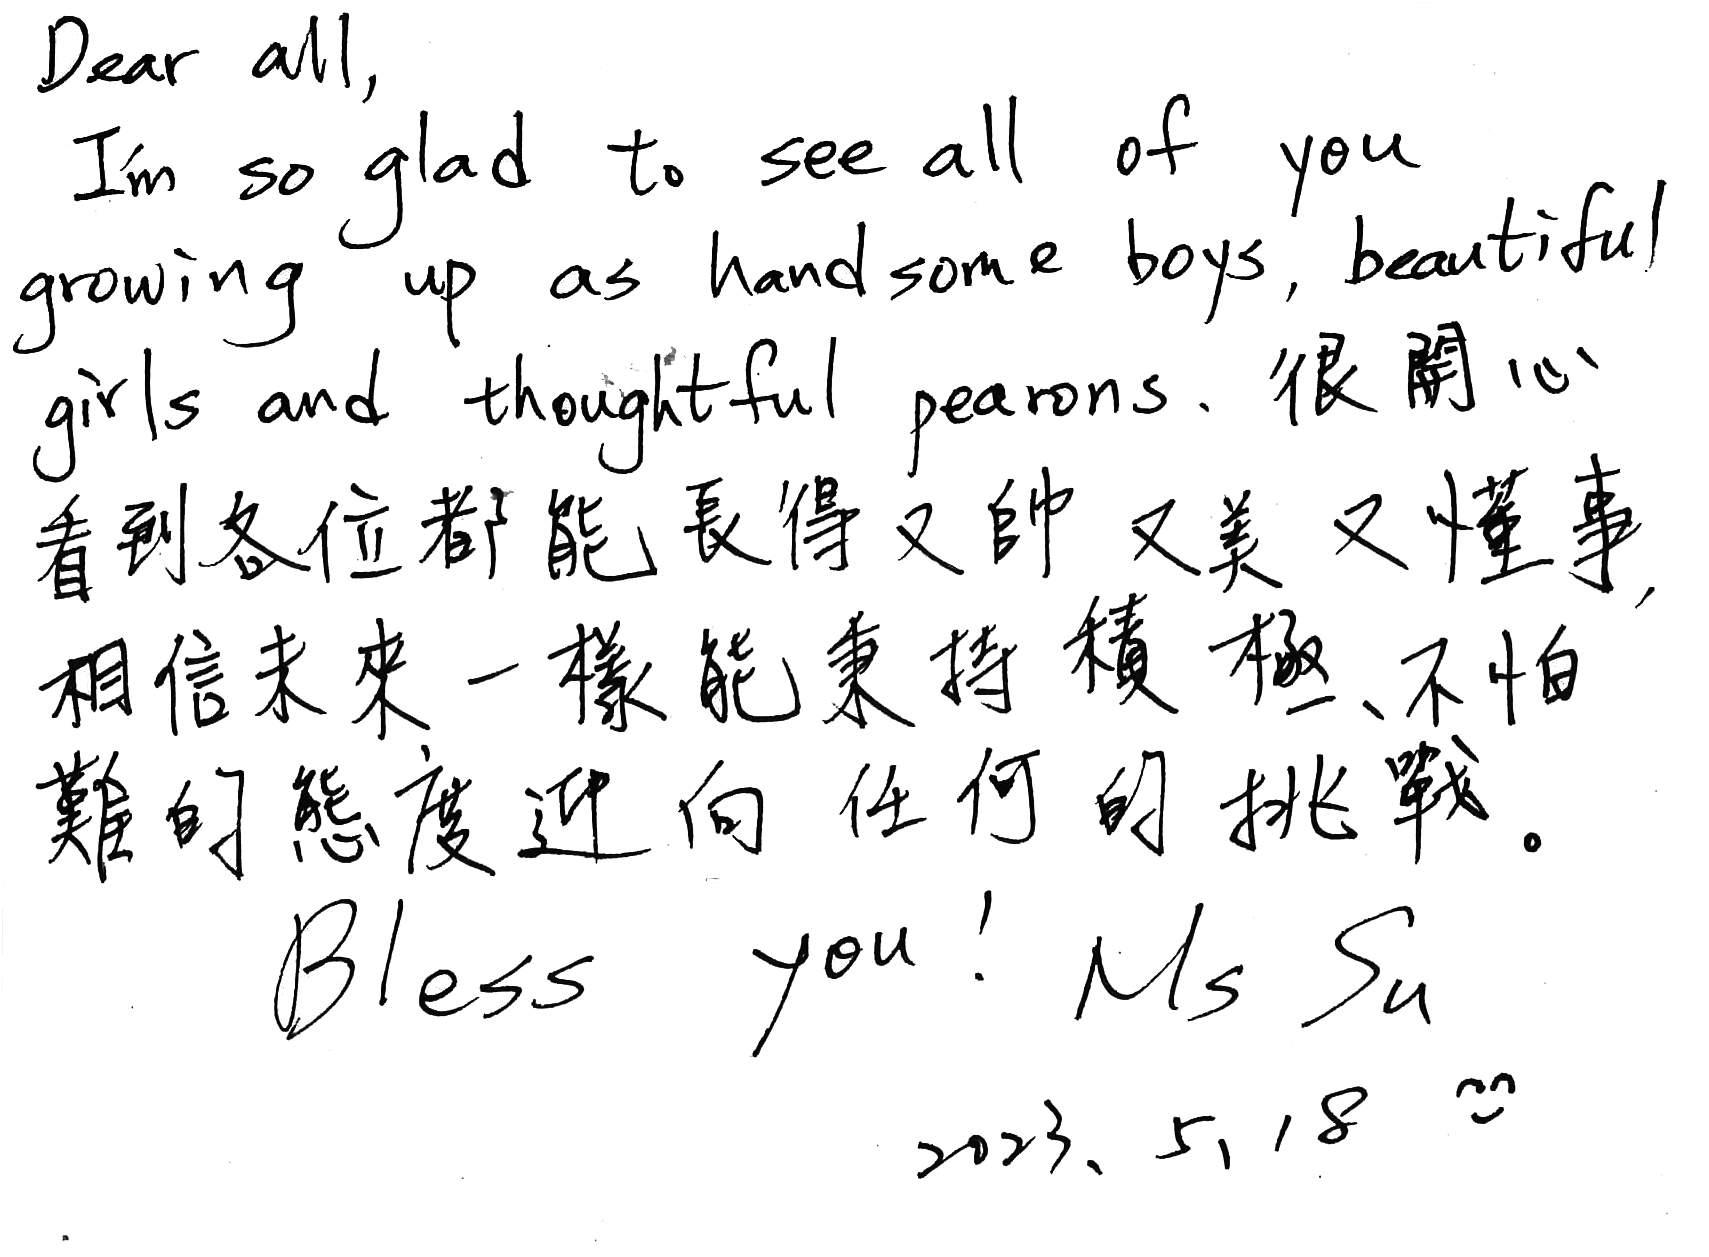 Dear all,
I'm so glad to see all of you
growing up as handsome boys, beautiful
girls and thoughtful pearons. 很開心
看到各位都能長得又帥又美又懂事,
相信未來一樣能秉持積極、不怕
難的態度迎向任何的挑戰。
Bless you! Ms Su
2023、5、18